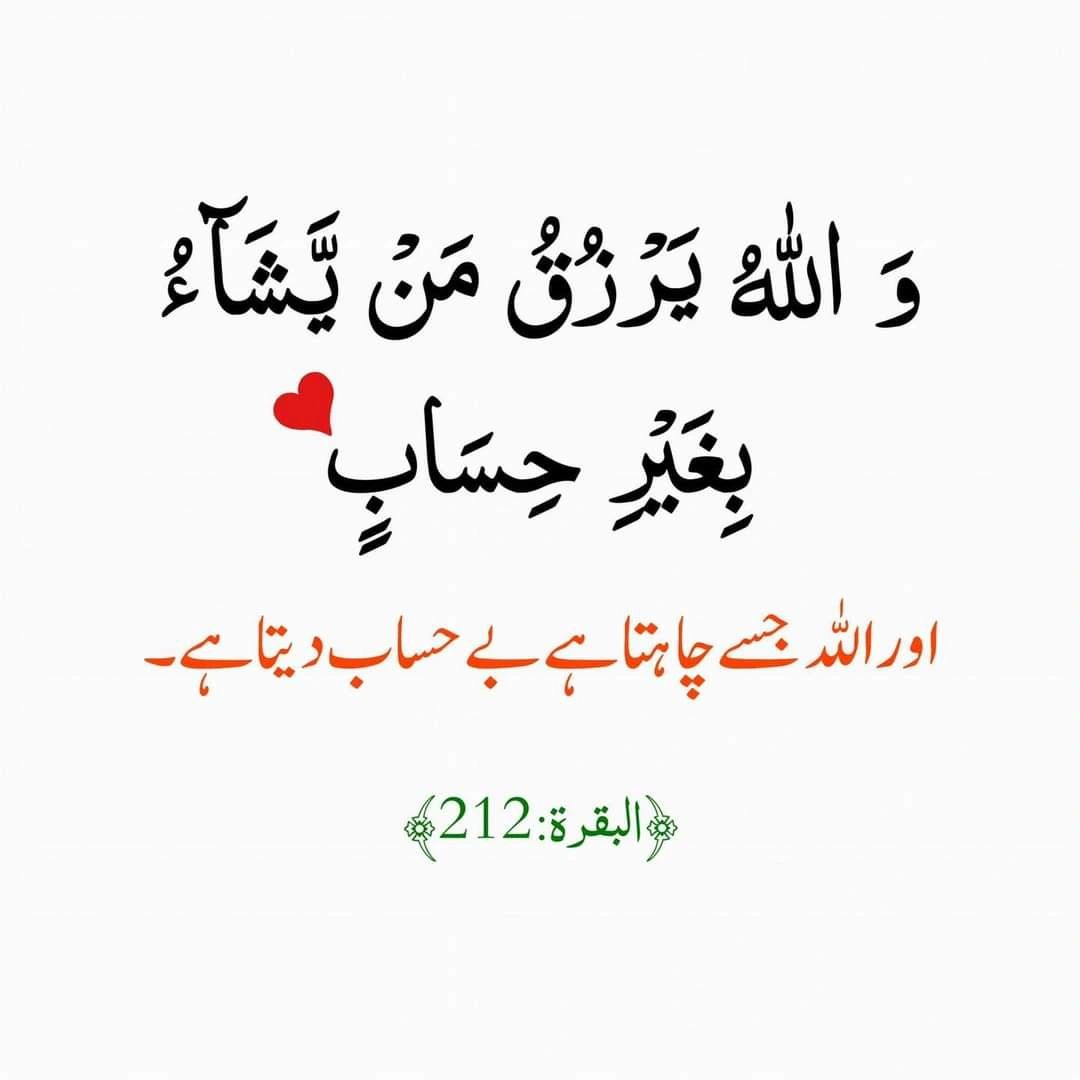 وَ اللّٰهُ يَرْزُقُ مَنْ يَّشَآءُ
بِغَيْرِ حِسَابٍ
اور اللہ جسے چاہتا ہے بے حساب دیتا ہے۔
﴿البقرة:212﴾